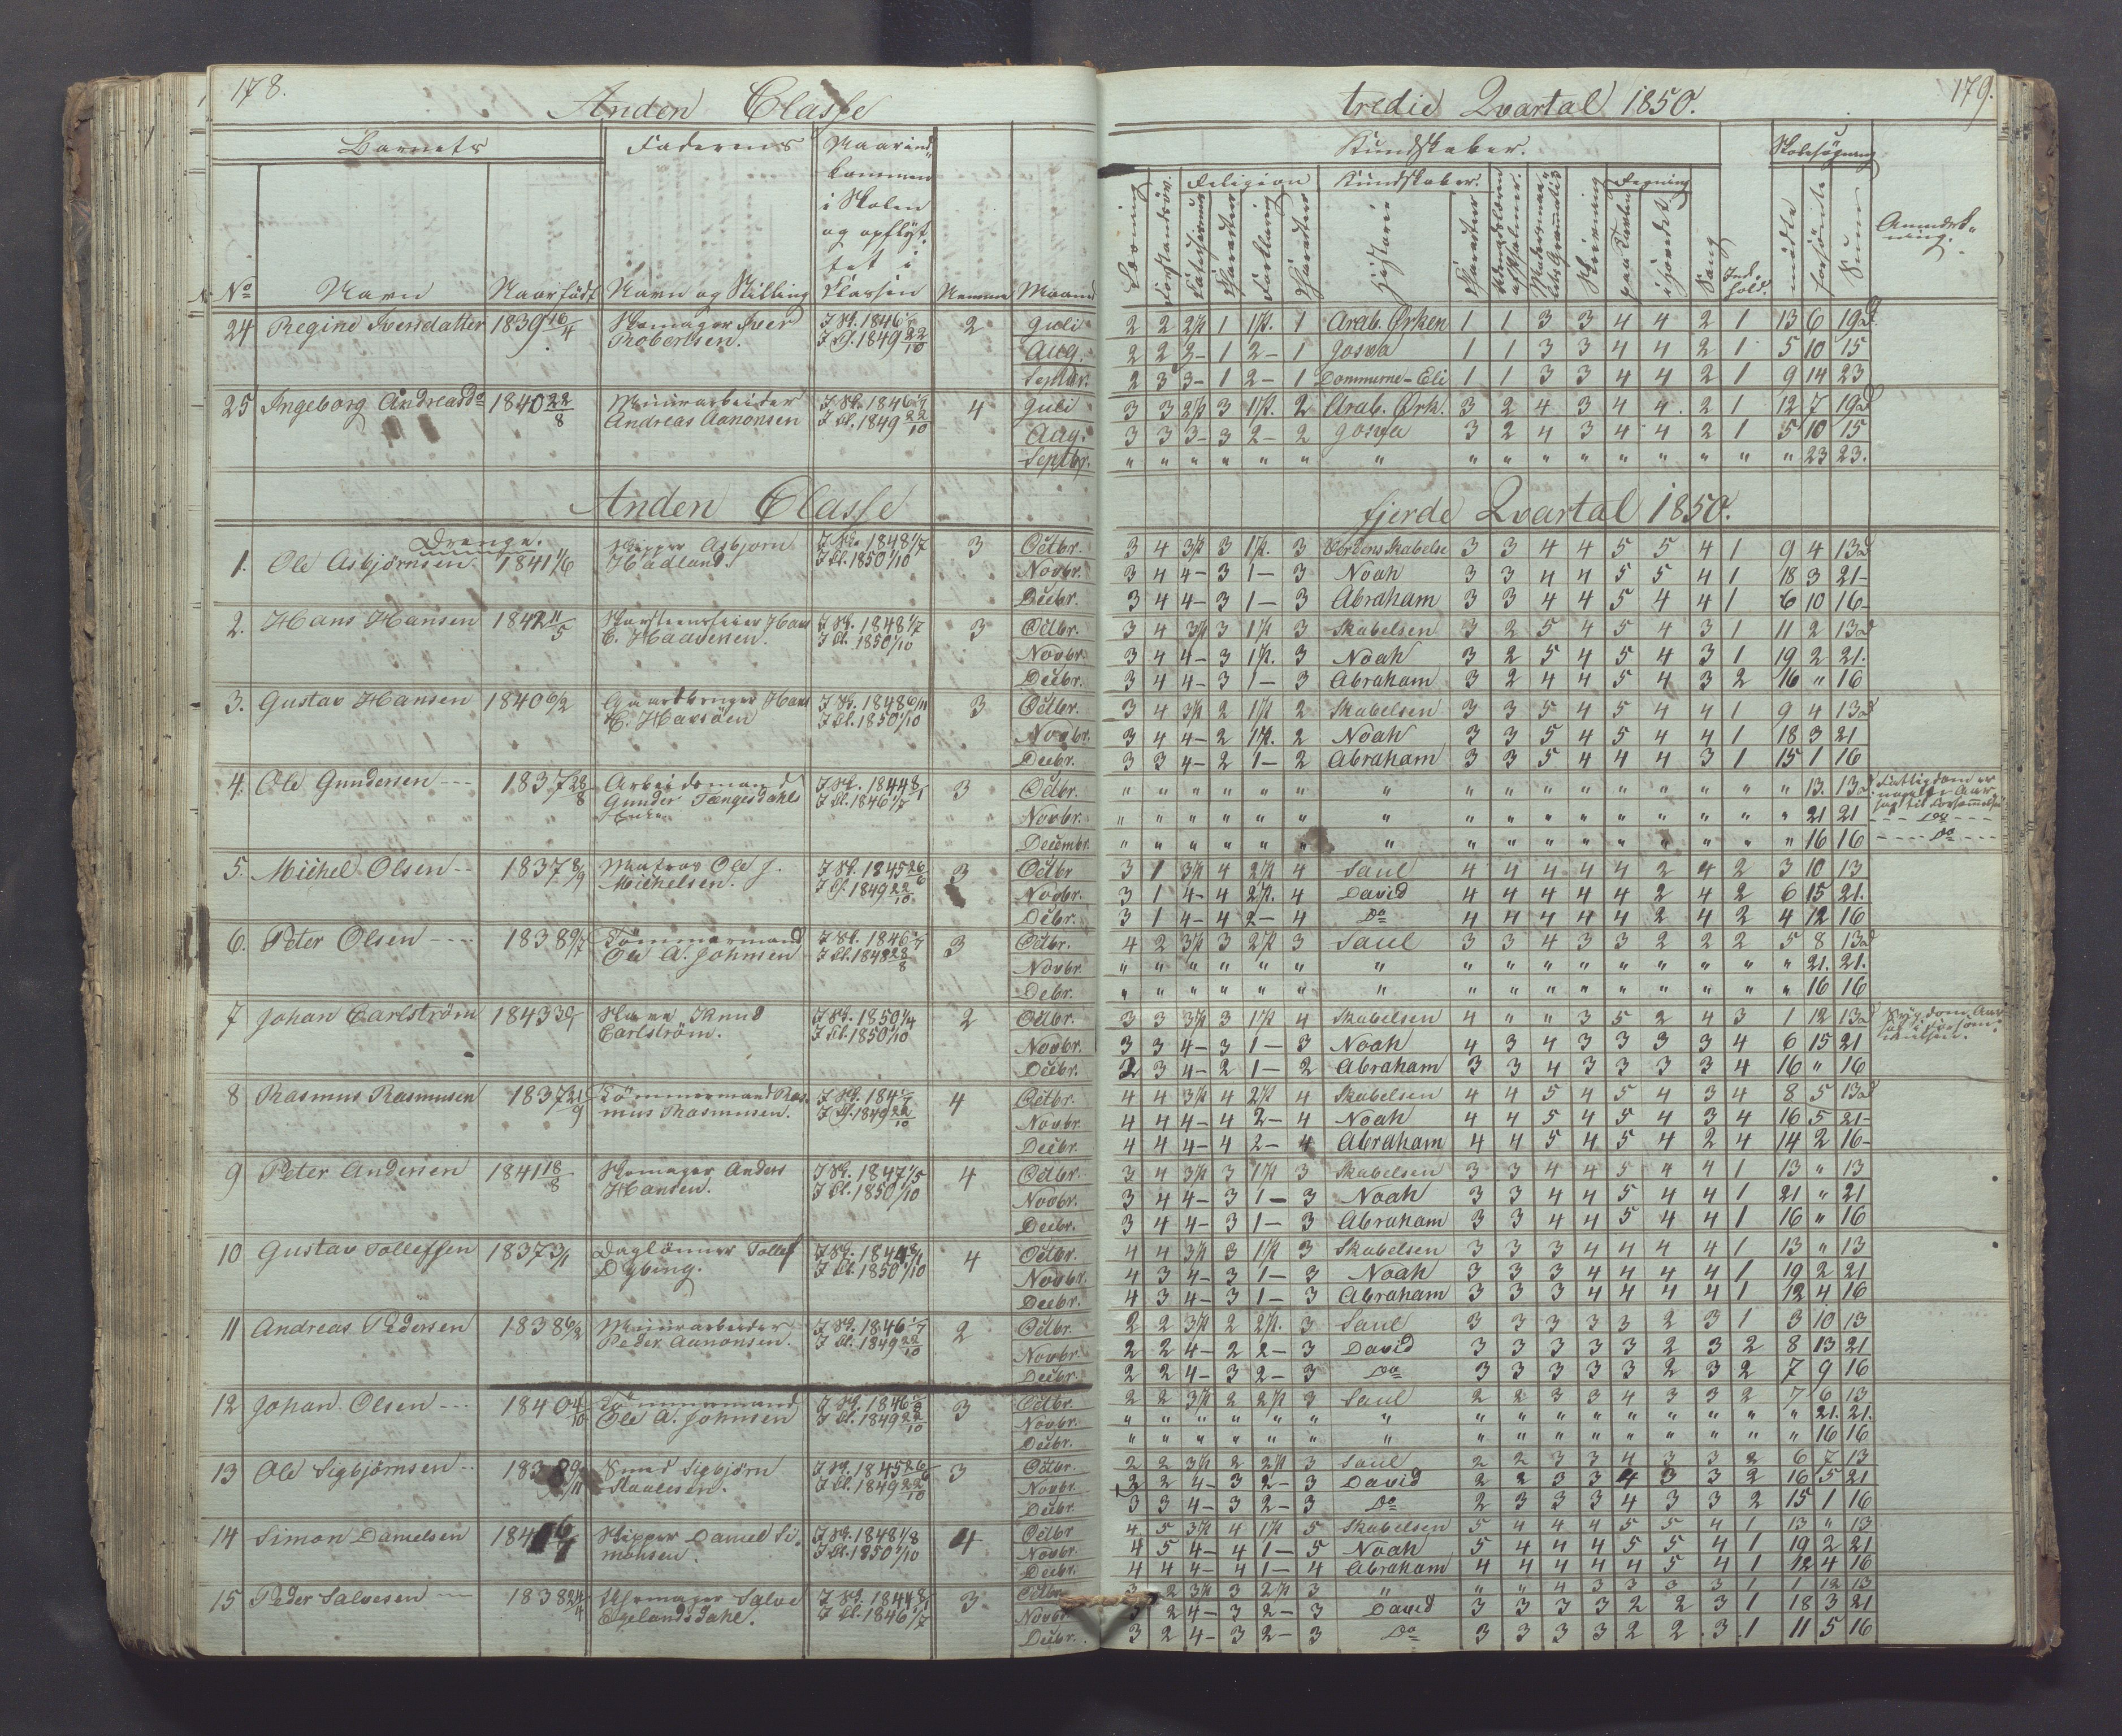 178.
Anden Classe
Barnets Faderens Naar ind-
kommen
i Skolen
og opflyt-
tet i
No Navn Naar født Navn og Stilling Classen Nemme Maaned
24 Regine Iversdatter 1839 16/4 Skomager Iver I Sk. 1846 2 Juli
Robertsen. I Cl. 1849 22/10 Aug.
Septbr.
25 Ingeborg Andreasdr 1840 22/8 Muurarbeider I Sk. 1846 4 Juli
Andreas Aanonsen I Cl. 1849 22/10 Aug.
Septbr.
Anden Classe
Drenge.
1. Ole Asbjørnsen 1841 1/6 Skipper Asbjørn I Sk. 1848 1/7 3 Octbr.
Hadland. I Cl. 1850 1/10 Novbr.
Decbr.
2. Hans Hansen 1842 11/5 Hans I Sk. 1848 1/7 3 Octbr.
C. Haavesen. I Cl. 1850 1/10 Novbr.
Decbr.
3. Gustav Hansen 1840 6/2 Gaardbruger Hans I Sk. 1848 6/11 3 Octbr.
H. Havsøen I Cl. 1850 1/10 Novbr.
Decbr.
4. Ole Gundersen 1837 28/8 Arbeidsmand I Sk. 1844 8/1 3 Octbr.
Gunder Tængesdahls I Cl. 1846 1/7
Enke Novbr.
Decembr.
5. Michel Olsen 1837 8/9 Matros Ole J. I Sk. 1845 26/6 3 Octbr
Michelsen. I Cl. 1849 22/10 Novbr.
Decbr.
6. Peter Olsen 1838 9/7 Tømmermand I Sk. 1846 3 Octbr.
Ole A. Johnsen I Cl. 1848 28/8 Novbr.
Decbr.
7 Johan Carlstrøm 1843 Knud I Sk. 1850 1/4 2 Octbr.
Carlstrøm. I Cl. 1850 1/10 Novbr.
Decbr.
8 Rasmus Rasmusen 1837 21/9 Tømmermand Ras- I Sk. 184 4 Octbr.
mus Rasmusen. I Cl. 1849 22/10 Novbr.
Decbr.
9 Peter Andersen 1841 18/8 Skomager Anders I Sk. 1847 1/5 4 Octbr.
Hansen. I Cl. 1850 1/10 Novbr.
Decbr.
10 Gustav Tollefsen 1837 3/1 Daglønner Tollef I Sk. 1844 8/1 4 Octbr.
Dybing. I Cl. 1850 1/10 Novbr.
Decbr.
11 Andreas Pedersen 1838 6/2 Muurarbeider I Sk. 1846 2 Octbr.
Peder Aanonsen. I Cl. 1849 22/10 Novbr.
Decbr.
12 Johan Olsen 1840 4/10 Tømmermand I Sk. 1846 3 Octbr.
Ole A. Johnsen I Cl. 1849 22/10 Novbr.
Decbr.
13 Ole Sigbjørnsen 1838 9/11 Smed Sigbjørn I Sk. 1845 26/6 3 Octbr.
I Cl. 1849 22/10 Novbr.
Decbr.
14 Simon Danielsen 184 Skipper Daniel Si- I Sk. 1848 1/8 4 Octbr
monsen. I Cl. 1850 1/10 Novbr.
Decbr.
15 Peder Salvesen 1838 24/4 Skomager Salve I Sk. 1844 8/1 3. Octbr.
Egelandsdahl. I Cl. 1846 1/7 Novbr.
Decbr.
179.
tredie Qvartal 1850.
Kundskaber. Skolesøgning
Religion Kundskaber. Regning Anmærk-
ning.
Læsning Forstandsøv. Forklaring Historie Skrivning paa Tavlen i Hovedet Sang Ind. hold. mødte forsømte Sum
2 2 2½ 1 1½. 1 Arab. Ørken 1 1 3 3 4 4 2 1 13 6 19 d
2 2 2- 1 2- 1 Josva 1 1 3 3 4 4 2 1 5 10 15
2 3 3- 1 2- 1 Dommerne-Eli 1 1 3 3 4 4 2 1 9 14 23
3 3 2½ 3 1½. 2 Arab. Ørk. 3 2 4 3 4 4 2 1 12 7 19 d
3 3 3- 3 2- 2 Josva 3 2 4 3 4 4 2 1 5 10 15
" " " " " " " " " " " " " " " " 23 23.
fjerde Qvartal 1850.
3 4 3½ 3 1½. 3 Verdens Skabelse 3 3 4 4 5 5 4 1 9 4 13 d
3 4 4- 3 1- 3 Noah 3 3 4 4 5 5 4 1 18 3 21-
3 4 4- 3 1- 3 Abraham 3 3 4 4 5 4 4 1 6 10 16-
3 4 3½ 3 1½ 3 Skabelsen 3 2 5 4 5 4 3 1 11 2 13 d
3 4 4- 3 1½. 3 Noah 3 2 5 4 5 4 3 1 19 2 21.
3 4 4- 3 1- 3 Abraham 3 2 4 4 5 4 3 2 16 " 16
3 4 3½ 2 1½ 2 Skabelsen 3 3 5 4 5 4 4 1 9 4 13 d
3 4 4- 2 1½. 2 Noah 3 3 5 4 5 4 4 1 18 3 21
3 3 4- 2 1- 2 Abraham 3 3 5 4 4 4 3 1 15 1 16
" " " " " " " " " " " " " " " " 13. 13 d Fattigdom er
" " " " " " " " " " " " " " " " 21 21 Do
" " " " " " " " " " " " " " " " 16 16 Do
3 1 3½ 4 2½ 4 Saul 4 4 4 4 4 2 4 2 3 10 13
3 1 4- 4 2½. 4 David 4 4 4 4 4 2 4 2 6 15 21.
3 1 4- 4 2- 4 Do 4 4 4 4 4 2 4 2 4 12 16
4 2 3½ 3 2½ 3 Saul 3 3 4 3 3 2 2 2 5 8 13 d
" " " " " " " " " " " " " " " " 21. 21.
" " " " " " " " " " " " " " " " 16 16
3 3 3½ 3 1½ 4 Skabelsen 4 " " 3 5 2 4 3 1 12 13 d Sygdom Aar-
3 3 4- 3 1- 3 Noah 4 3 4 3 3 3 3 4 6 15 21
2 3 4- 2 1- 2 Abraham 3 3 4 3 3 3 3 4 16 " 16
4 4 3½ 4 2½ 4 Skabelsen 4 4 5 4 5 4 3 4 8 5 13 d
4 4 4- 4 2- 4 Noah 4 4 5 4 5 4 3 4 16 5 21-
4 4 4- 4 2- 4 Abraham 4 4 5 4 5 4 2 4 14 2 16-
3 4 3½ 3 1½ 3 Skabelsen 3 3 4 4 5 4 4 1 13 " 13
3 4 4- 3 1- 3 Noah 3 3 4 4 5 4 4 1 21 " 21
3 4 4- 3 1- 3 Abraham 3 3 4 4 5 4 4 1 16 " 16
4 4 3½ 3 1½ 3 Skabelsen 3 3 3 4 4 4 4 1 13 " 13
4 3 4- 3 1- 3 Noah 3 3 3 4 4 4 4 1 19 2 21
4 3 4- 3 1- 3 Abraham 3 3 3 4 4 4 4 1 12 4 16
2 2 3½ 2 2½. 3 Saul 3 3 3 3 3 2 3 1 3 10 13
2 2 4- 2 2- 3 David 3 3 3 3 3 2 3 2 8 13 21
2 2 4- 3 2- 3 Do 3 3 3 3 3 2 3 2 7 9 16
2 2 3½ 2 2½ 3 Saul 2 2 3 3 4 3 3 2 7 6 13
" " " " " " " " " " " " " " " " 21. 21.
" " " " " " " " " " " " " " " " 16 16
2 2 3½ 2 2½ 3 Saul 2 2 3 3 4 3 3 2 6 7 13
2 2 4- 3 2- 3 David 2 2 3 3 4 3 3 2 16 5 21
3 3 4- 3 2- 3 Do 2 3 3 3 4 3 3 2 15 1 16
4 5 3½ 4 1½ 5 Skabelsen 5 4 4 4 5 5 4 1 13 " 13
4 5 4- 4 1- 5 Noah 5 4 4 4 5 5 4 1 19 2 21
4 4 4- 4 1- 4 Abraham 4 4 4 4 4 5 4 1 12 4 16
3 2 3½ 3 2½ 3 " " " 4 3 3 3 3 1 1 12 13
3 2 4- 3 2- 3 David 3 3 3 3 2 2 3 1 18 3 21
3 2 4- 3 2- 3 Do 3 3 3 3 2 2 3 1 11 5 16